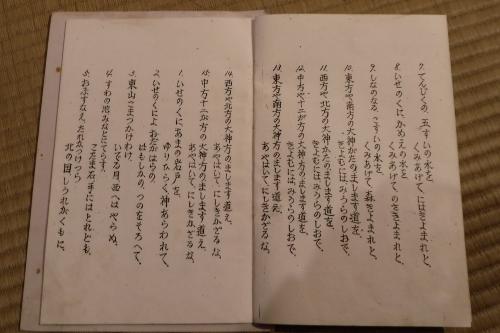 7. てんじくの 五すいの水を
くみあげて、にはきよまれと、
8. いせのくに、かめえの水を
くみあげて のきさよまれと、
9. しなのなる、こすいの水を
くみあげて、森きよまれと、
10. 東方や南方の大神がたのまします道を、
きよむにはみうらのしおで、
11. 西方や北方の大神がたのまします道を、
きよむにはみうらのしおで、
12. 中方や十二が方の大神方のまします道を
きよむにはみうらのしおで、
13. 東方や南方の大神方のまします道え、
あやはいて、にしきかざるな、
14. 西方や北方の大神方のまします道え、
あやはいて、にしきかざるな、
15. 中方十二が方の大神方のまします道え、
あやはいて、にしきかざるな、
1. いせのくにあまの岩戸を、
ゆりひらく、神あらわれて、
2. いせのくによおだがはらの、
はもがみの、つのをそろへて、
3. 東山こまつかけわけ、
いでる月、西へはやらぬ、
4. すわの池みなそこてらす、
こだま石、手にはとれども、
5. おぼすなえ、たれなつけつら
北の国しうれがくもに、